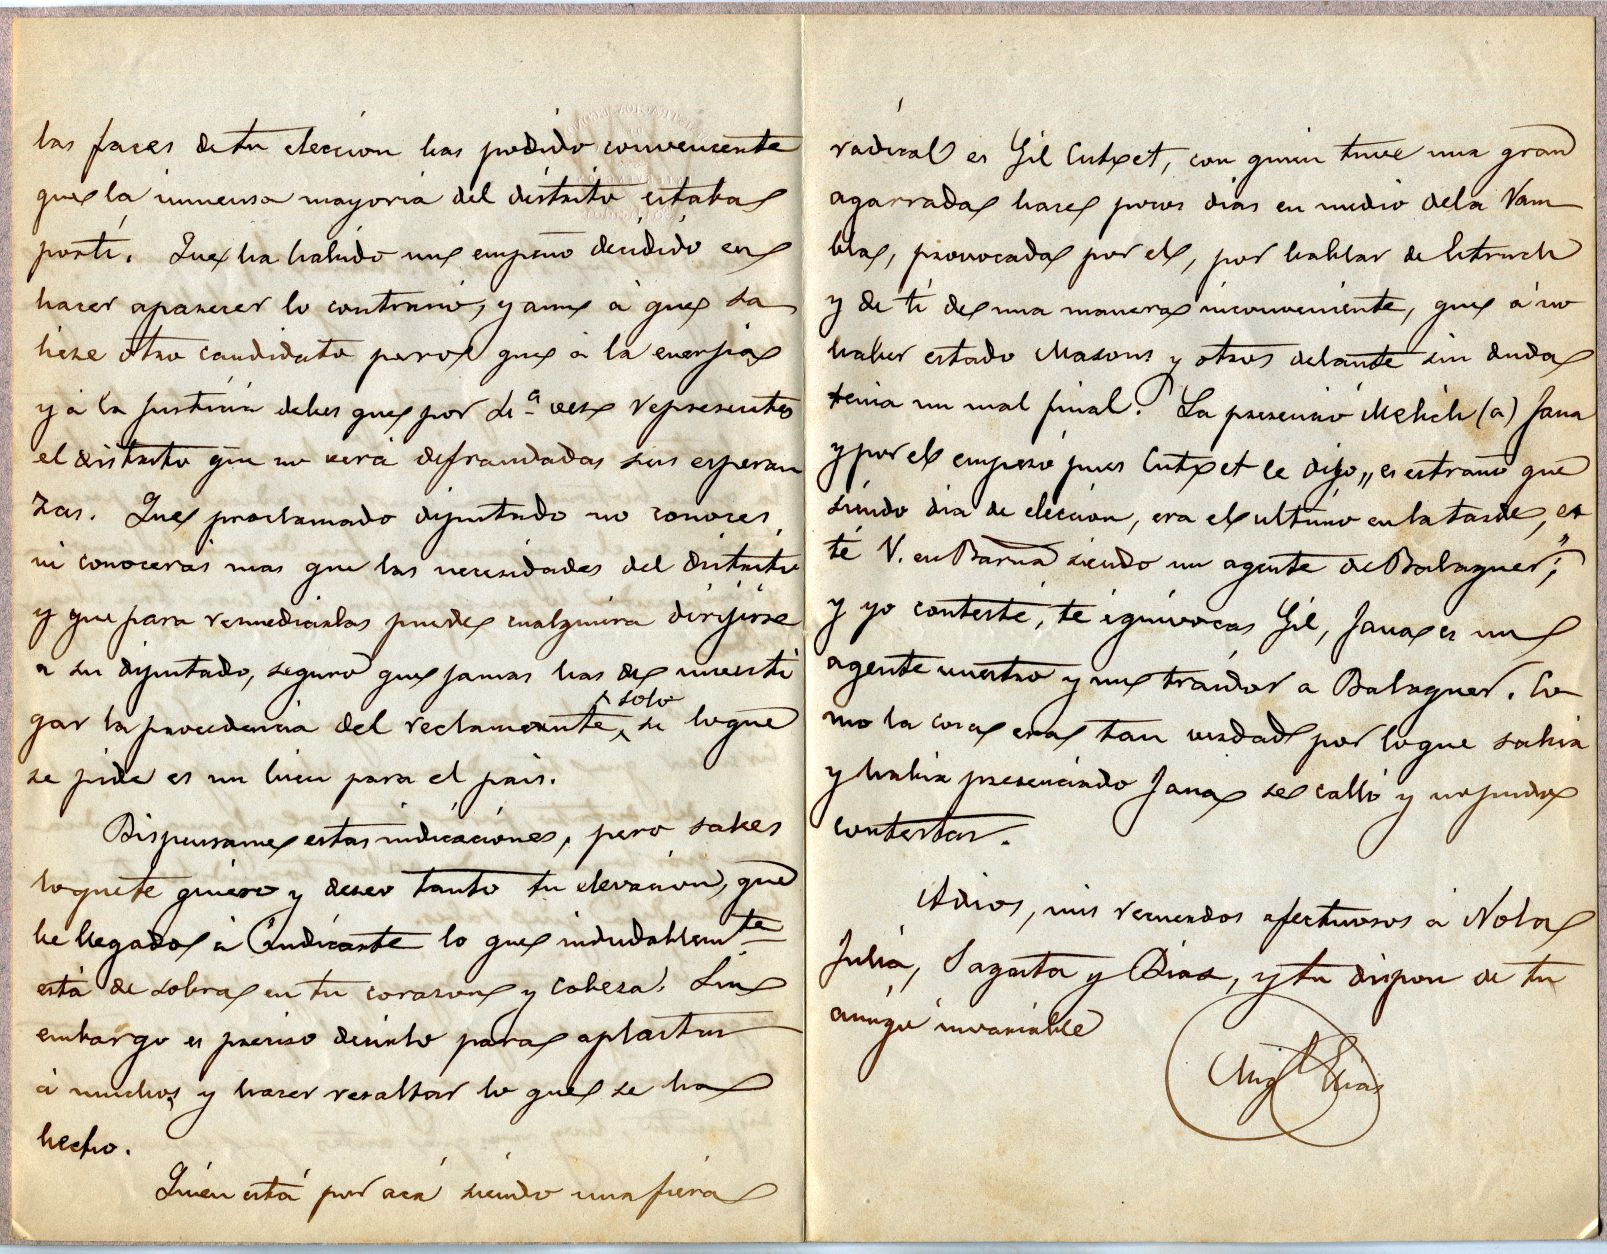 las faces de tu elección has podido convencerte
que la inmensa mayoria del distrito estaba
por ti. Que ha habido un empeño decidido en
hacer aparecer lo contrario, y aun á que sa
liese otro candidato pero que á la enerjia
y á la justicia debes que por 4.ª vez representes
el distrito que no verá defraudadas sus esperan
zas. Que proclamado diputado no conoces,
ni conocerás mas que las necesidades del distrito
y que para remediarlas puede cualquiera dirijirse
a su diputado, seguro que jamas has de investi
gar la procedencia del reclamante, solo si lo que
se pide es un bien para el pais.
Dispensame estas indicaciones, pero sabes
lo que te quiero y deseo tanto tu elevacion, que
he llegado á indicarte lo que indudablemte
está de sobra en tu corazon y cabeza. Sin
embargo es preciso decirlo para aplastar
á muchos, y hacer resaltar lo que se ha
hecho.
Quien está por acá siendo una fiera
radical es Gil Cutxet, con quien tuve una gran
agarrada hace pocos dias en medio de la Ram
bla, provocada por el, por hablar de
y de ti de una manera inconveniente, que á no
haber estado Masons y otros delante sin duda
tenia un mal final. La presenció Melich (a) Jana
y por el empezó pues Cutxet le dijo „ es estraño que
siendo dia de eleccion, era el ultimo en la tarde, es
té V. en Barna siendo un agente de Balaguer";
y yo contesté, te equivocas Gil, Jana es un
agente nuestro y un traidor a Balaguer. Co
mo la cosa era tan verdad por lo que sabia
y habia presenciado Jana se calló y no pudo
contestar.
Adios, mis recuerdos afectuosos á Nola
Juliá, Sagasta y Diaz, y tu dispon de tu
amigo invariable
Migl Elias